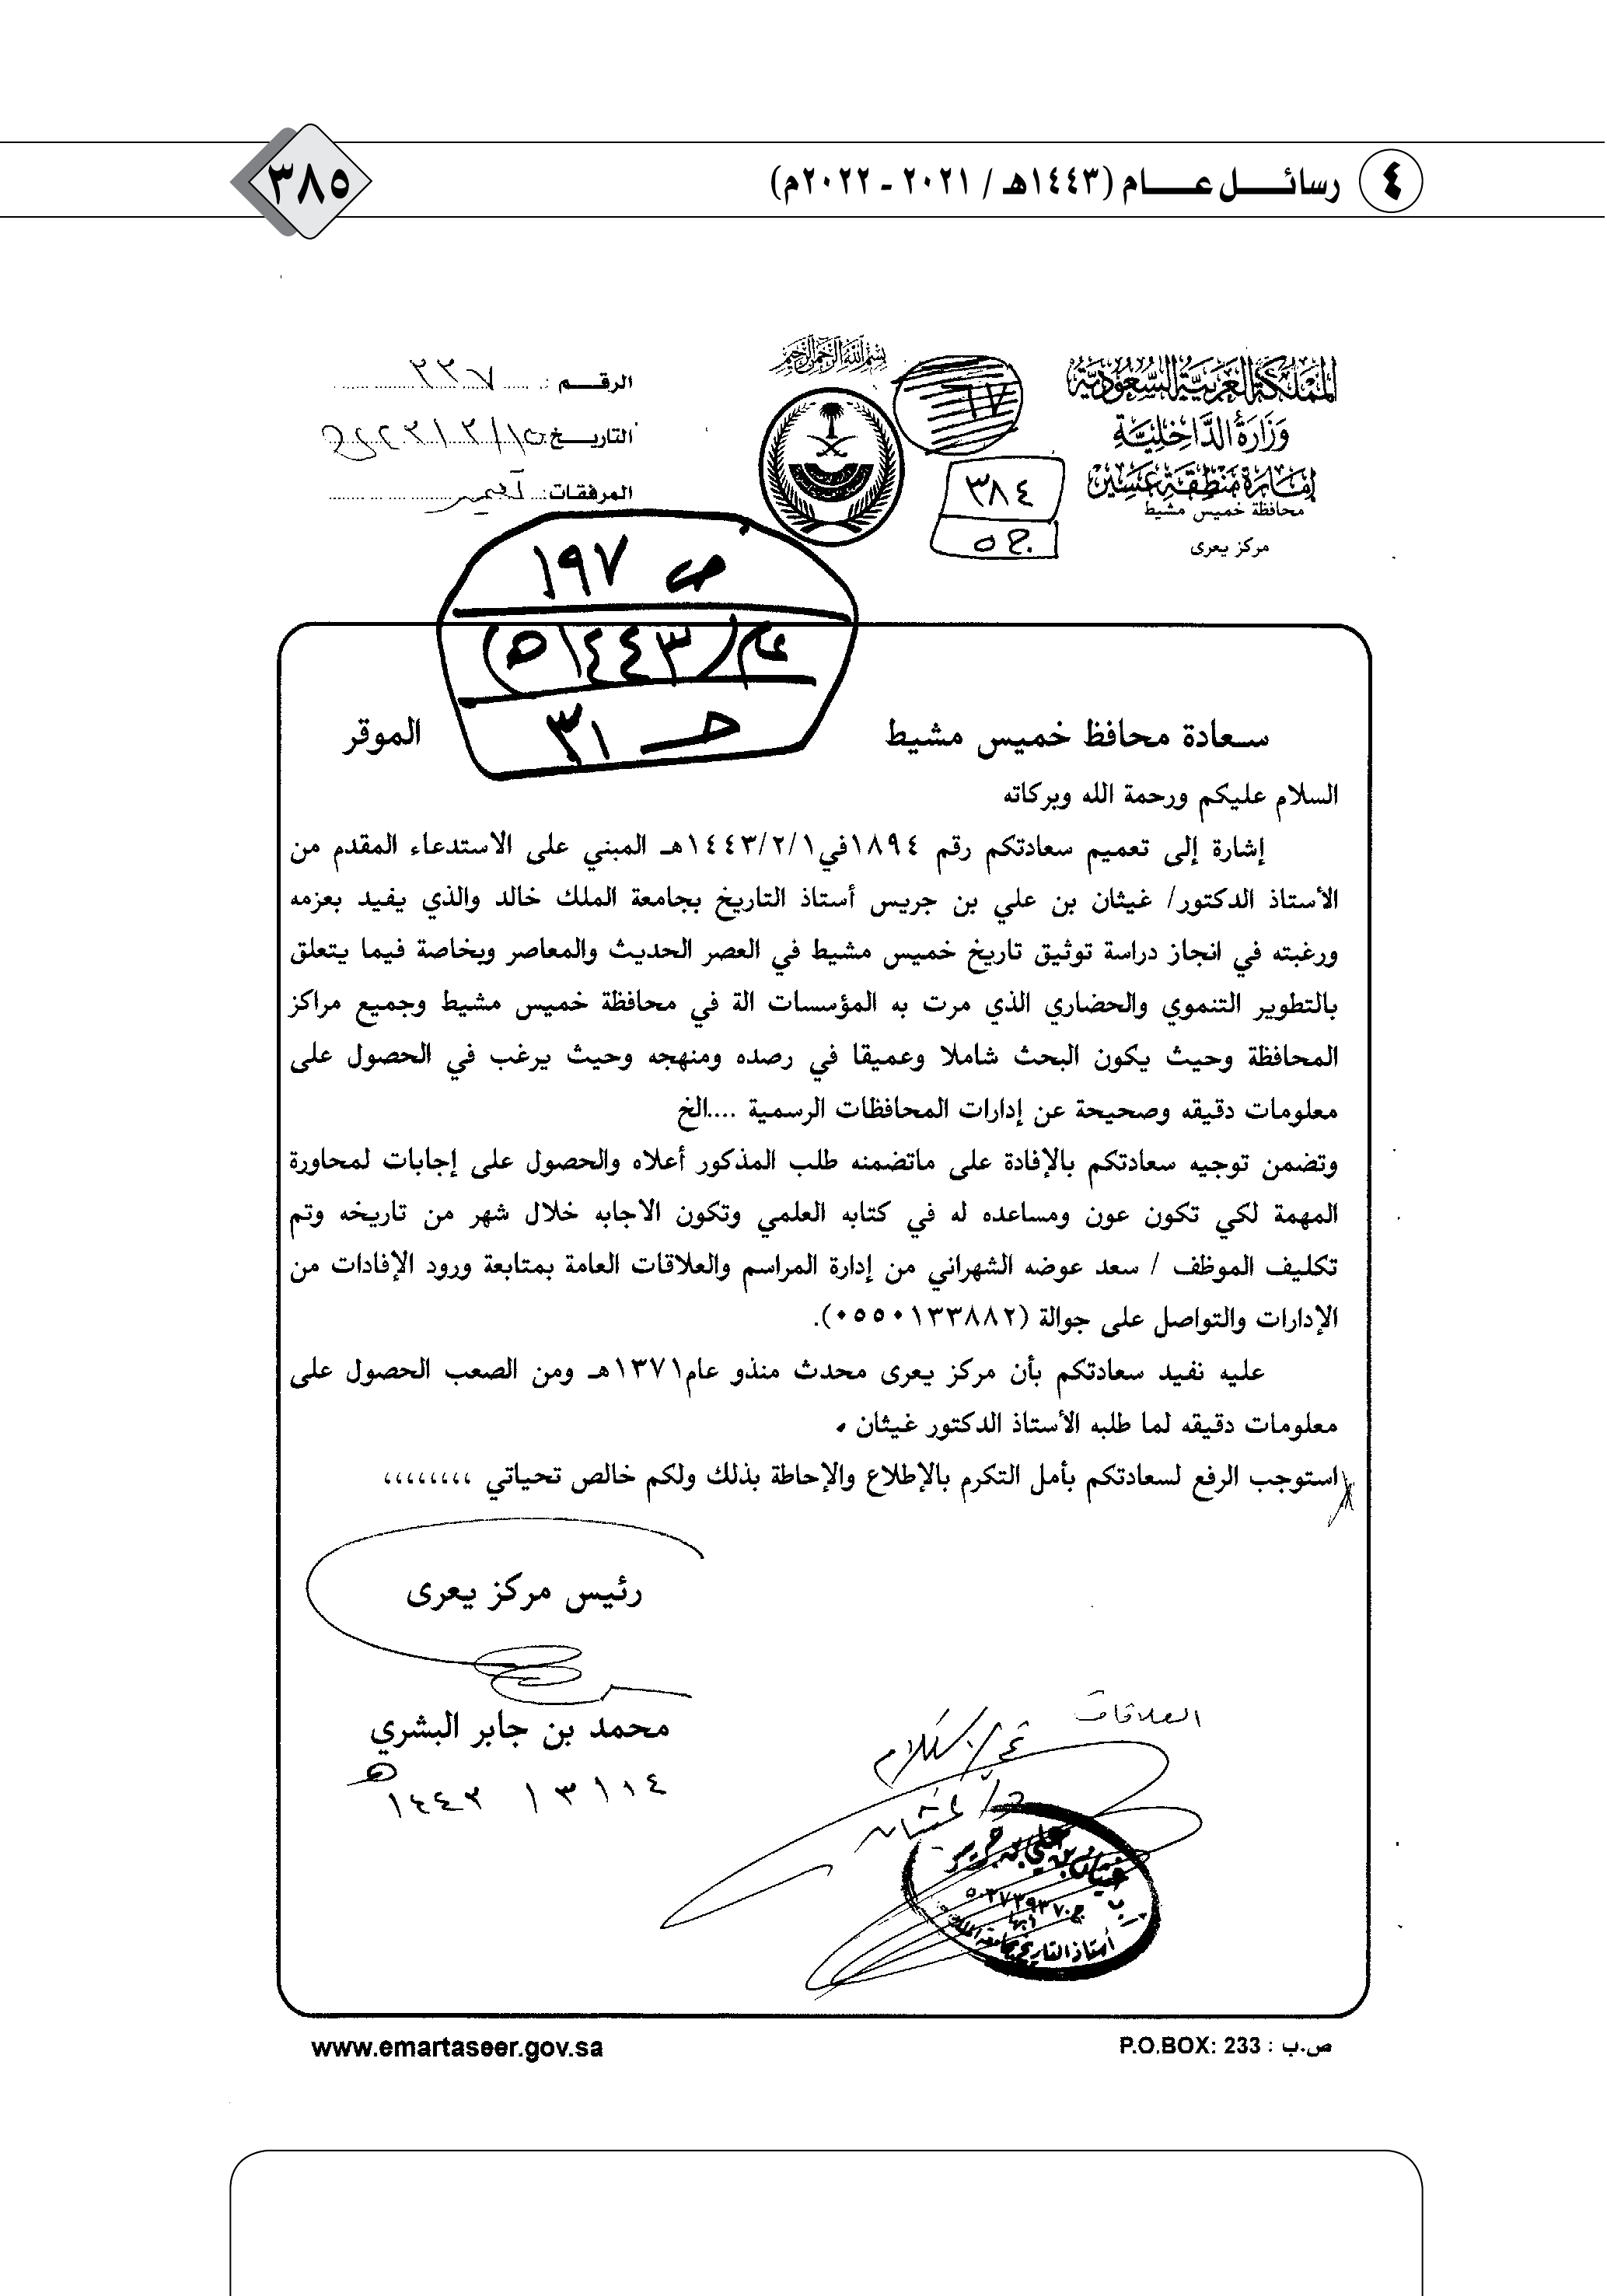 ٤ رسائل عام (١٤٤٣هـ / ٢٠٢١ - ٢٠٢٢م)
٣٨٥
المملكة العربية السعودية
وزارة الداخلية
إمارة منطقة عسير
محافظة خميس مشيط
مركز يعرى
بسم الله الرحمن الرحيم
١٧
٣٨٤
ج ٥
الرقم : ٢٣٧
التاريخ: ١٥/
المرفقات:
ص ١٩٧
عام/ (١٤٤٣هـ)
حـ ٣١
سعادة محافظ خميس مشيط الموقر
السلام عليكم ورحمة الله وبركاته
إشارة إلى تعميم سعادتكم رقم ١٨٩٤في١٤٤٣/٢/١هـ المبني على الاستدعاء المقدم من
الأستاذ الدكتور/ غيثان بن علي بن جريس أستاذ التاريخ بجامعة الملك خالد والذي يفيد بعزمه
ورغبته في انجاز دراسة توثيق تاريخ خميس مشيط في العصر الحديث والمعاصر وبخاصة فيما يتعلق
بالتطوير التنموي والحضاري الذي مرت به المؤسسات الة في محافظة خميس مشيط وجميع مراكز
المحافظة وحيث يكون البحث شاملا وعميقا في رصده ومنهجه وحيث يرغب في الحصول على
معلومات دقيقه وصحيحة عن إدارات المحافظات الرسمية ....الخ
وتضمن توجيه سعادتكم بالإفادة على ماتضمنه طلب المذكور أعلاه والحصول على إجابات لمحاورة
المهمة لكي تكون عون ومساعده له في كتابه العلمي وتكون الاجابه خلال شهر من تاريخه وتم
تكليف الموظف / سعد عوضه الشهراني من إدارة المراسم والعلاقات العامة بمتابعة ورود الإفادات من
الإدارات والتواصل على جوالة (٠٥٥٠١٣٣٨٨٢).
عليه نفيد سعادتكم بأن مركز يعرى محدث منذو عام١٣٧١هـ ومن الصعب الحصول على
معلومات دقيقه لما طلبه الأستاذ الدكتور غيثان .
استوجب الرفع لسعادتكم بأمل التكرم بالإطلاع والإحاطة بذلك ولكم خالص تحياتي ،،،،،،،،
رئيس مركز يعرى
محمد بن جابر البشري
١٤ / ٣ / ١٤٤٣هـ
العلاقات
د/ غيثان
غيثان بن علي بن جريس
أستاذ التاريخ بجامعة الملك
www.emartaseer.gov.sa
ص.ب : P.O.BOX: 233